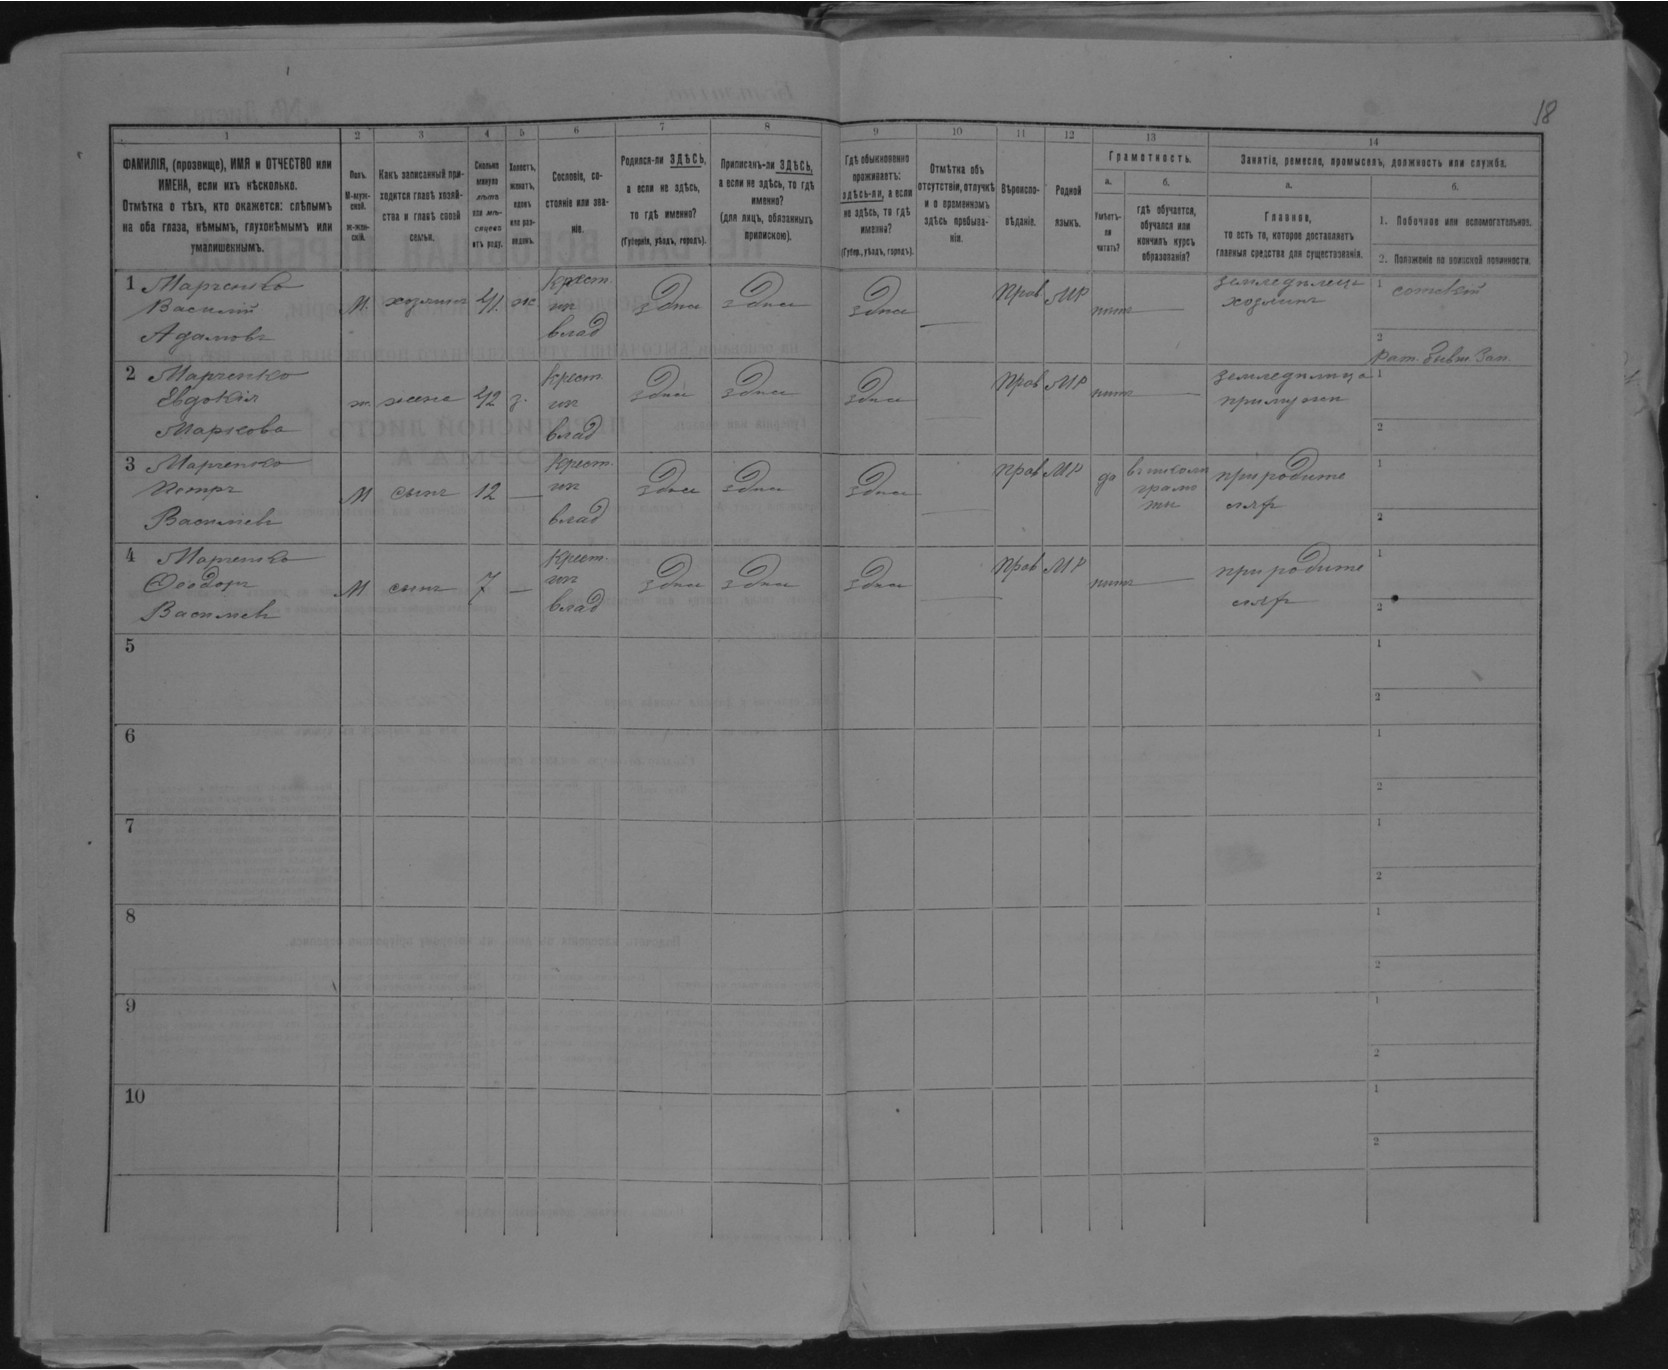 18
1
2
3
4
5
6
7
8
9
10
11
12
13
14
ФАМИЛІЯ, (прозвище), ИМЯ и ОТЧЕСТВО или
ИМЕНА, если ихъ нѣсколько.
Отмѣтка о тѣхъ, кто окажется: слѣпымъ
на оба глаза, нѣмымъ, глухонѣмымъ или
умалишеннымъ.
Полъ.
М-муж-
ской.
ж-жен-
скій.
Какъ записанный при-
ходится главѣ хозяй-
ства и главѣ своей
семьи.
Сколько
минуло
лѣтъ
или мѣ-
сяцевъ
отъ роду.
Холостъ,
женатъ,
вдовъ
или раз-
веденъ.
Сословіе, со-
стояніе или зва-
ніе.
Родился-ли ЗДѢСЬ,
а если не здѣсь,
то гдѣ именно?
(Губернія, уѣздъ, городъ).
Приписанъ-ли ЗДѢСЬ,
а если не здѣсь, то гдѣ
именно?
(для лицъ, обязанныхъ
припискою).
Гдѣ обыкновенно
проживаетъ:
здѣсь-ли, а если
не здѣсь, то гдѣ
именно?
(Губер., уѣздъ, городъ).
Отмѣтка объ
отсутствіи, отлучкѣ
и о временномъ
здѣсь пребыва-
ніи.
Вѣроиспо-
вѣданіе.
Родной
языкъ.
Грамотность.
а.
Умѣетъ-
ли
читать?
б.
гдѣ обучается,
обучался или
кончилъ курсъ
образованія?
Занятіе, ремесло, промыселъ, должность или служба.
а.
Главное,
то есть то, которое доставляетъ
главныя средства для существованія.
б.
1. Побочное или вспомогательное.
2. Положеніе по воинской повинности.
1 Марченко
Василій
Адамовъ
М
хозяинъ
41
ж
Крест.
из
влад
здѣсь
здѣсь
здѣсь
Прав
МР
нѣтъ
земледѣлецъ
хозяинъ
1
сотскій
2
Рат. бывш. Зап.
2 Марченко
Евдокія
Маркова
ж.
жена
42
з.
Крест.
из
влад
здѣсь
здѣсь
здѣсь
Прав
МР
нѣтъ
земледѣлица
при мужѣ
1
2
3 Марченко
Петръ
Васильевъ
М
сынъ
12
Крест.
из
влад
здѣсь
здѣсь
здѣсь
Прав
МР
да
въ школѣ
грамо
ты
при родите
ляхъ
1
2
4 Марченко
Ѳеодоръ
Васильевъ
М
сынъ
7
Крест.
из
влад
здѣсь
здѣсь
здѣсь
Прав
МР
нѣтъ
при родите
ляхъ
1
2
5
1
2
6
1
2
7
1
2
8
1
2
9
1
2
10
1
2